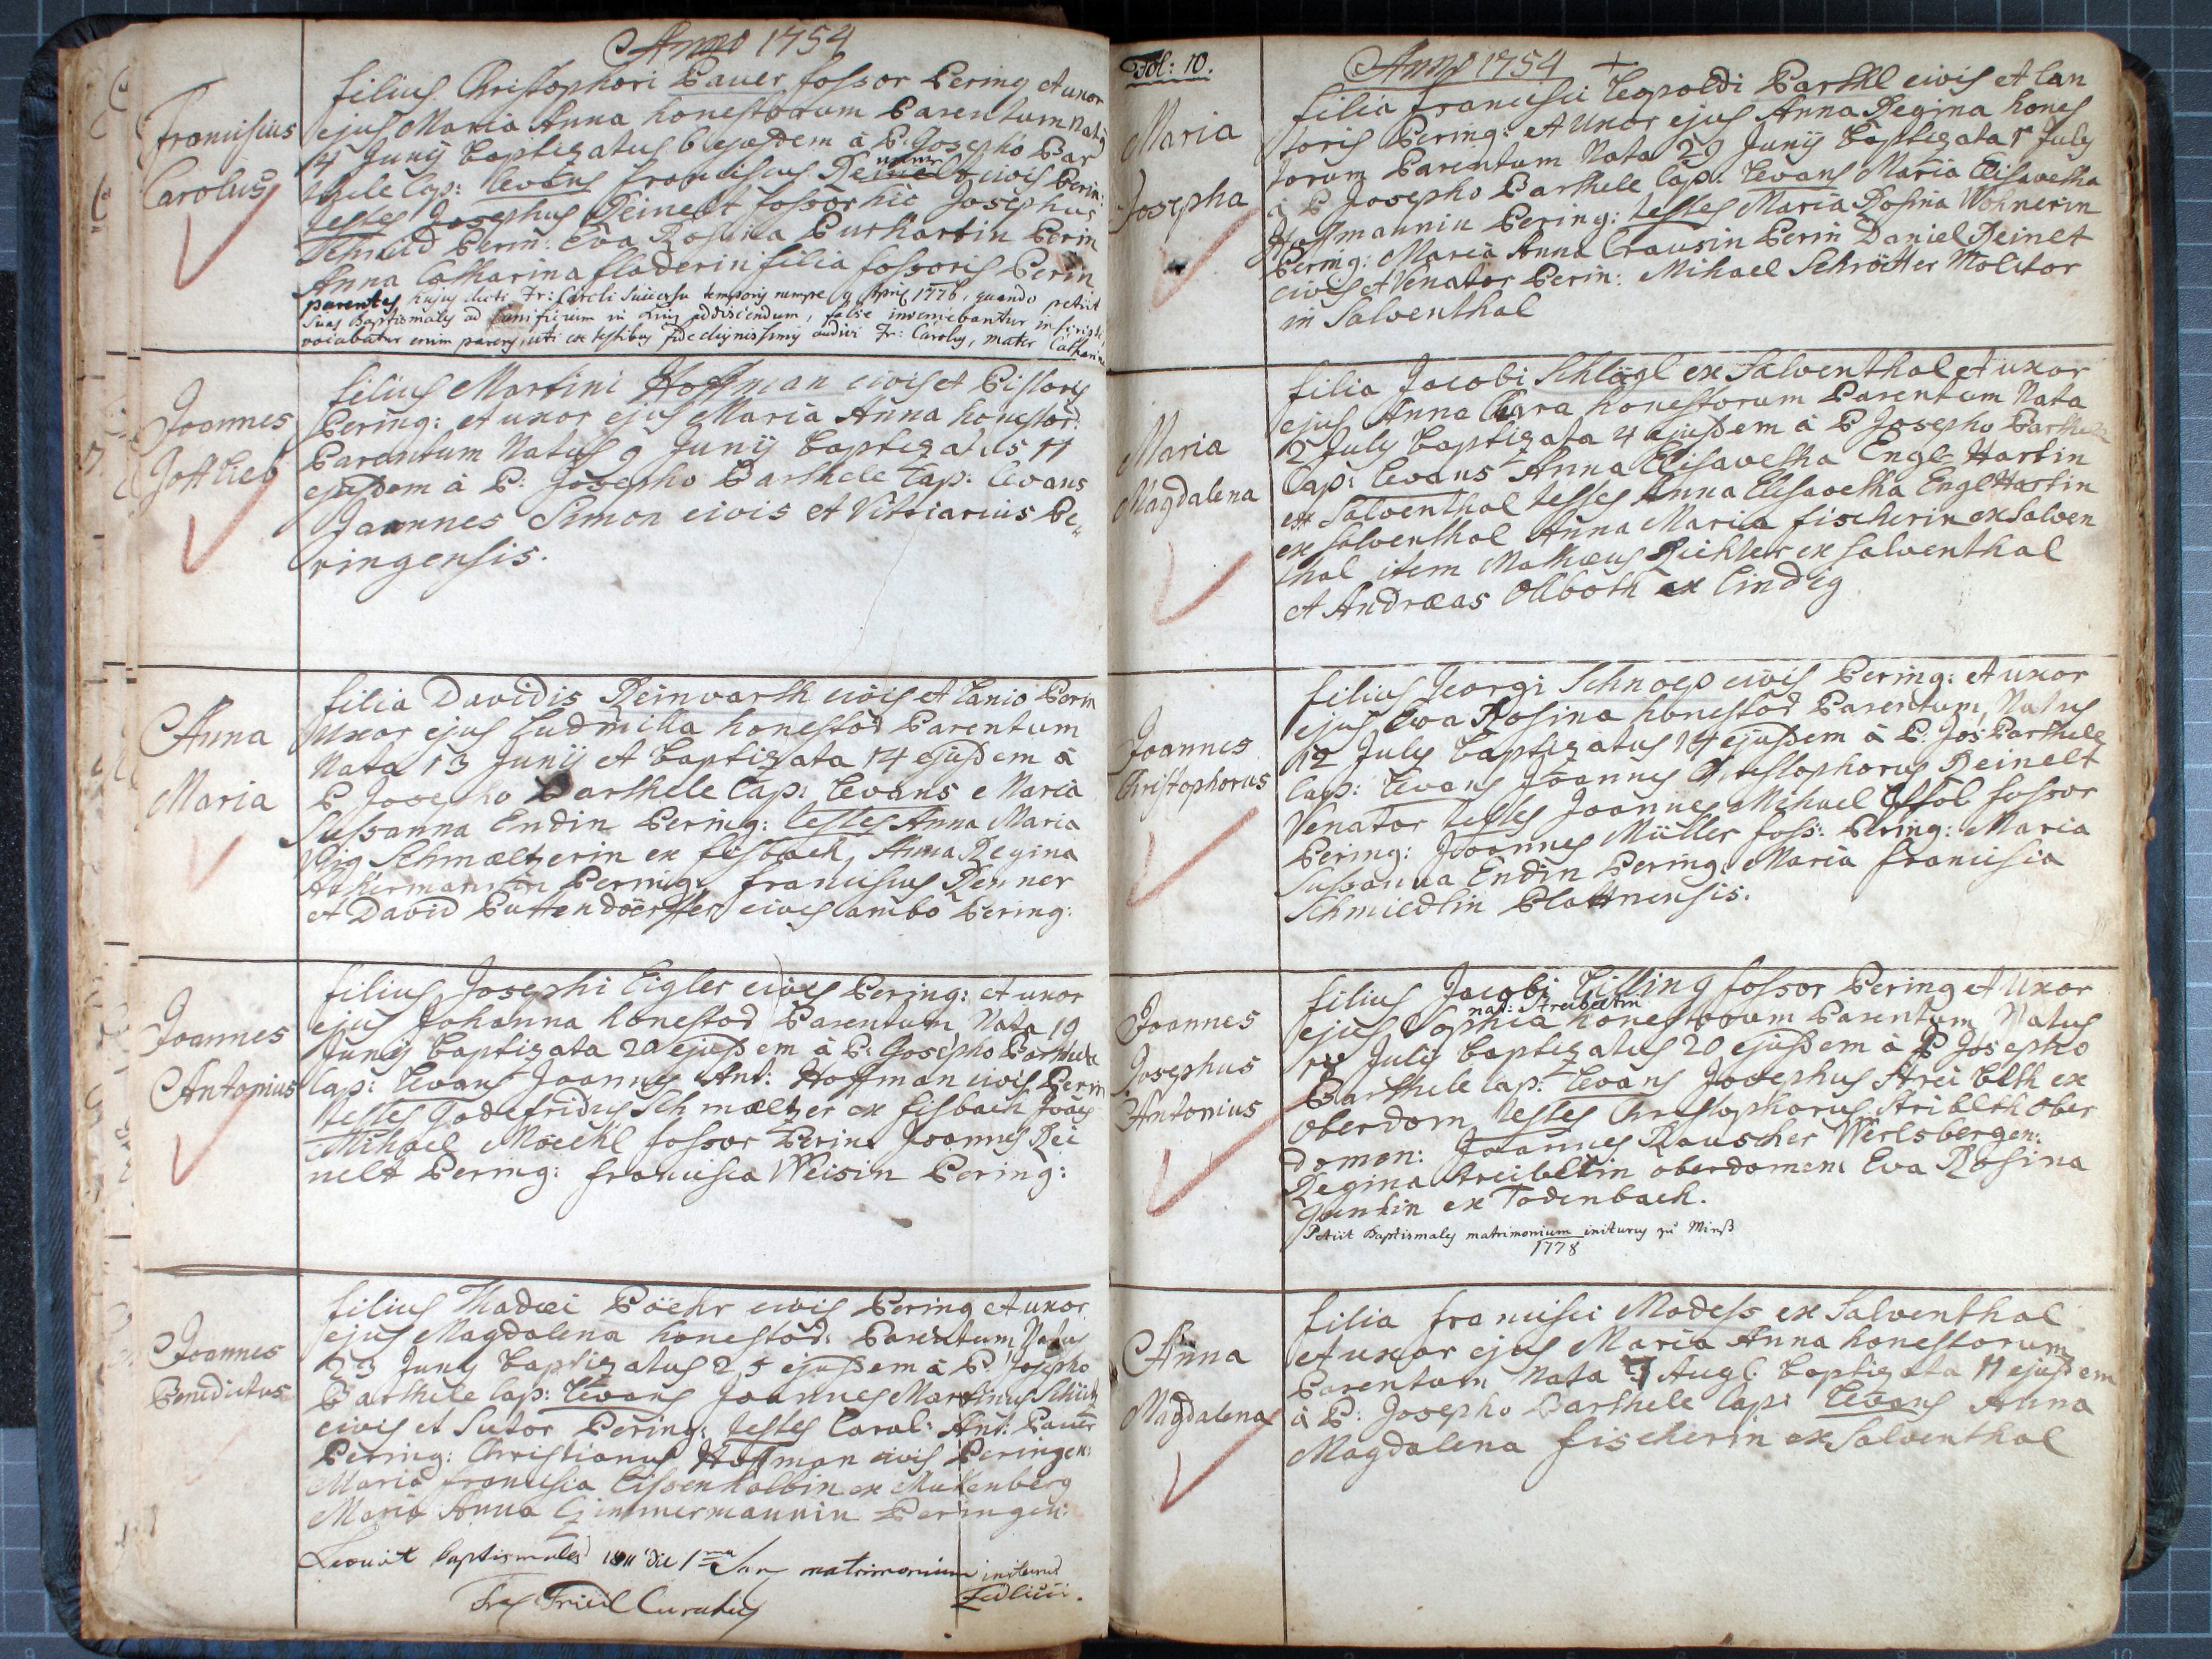 Anno 1754
Franciscus
Carolus
filius Christophori Bauer fossor Bering et uxor
ejus Maria Anna honestorum Parentum Nat9
4 Junij baptizatus 6 ejusdem à P. Josepho Bar
thele Cap: levans Franciscus civis Berin:
testes Josephus Reinelt fossor hic Josephus
Schmid Berin: Eva Rosina Burkartin Berin
Anna Catharina fladerin filia fossoris Berin
parentes hujus dicti Fr: Caroli successu temporis nempe 9 April 1776, quando petiit
suas Baptismales ad lanificium in addiscendum, false inveniebantur
vocabatur enim parens, uti ex testibus fide dignissimis audivi Fr: Carolus, mater Catharina
Joannes
Gottlieb
filius Martini Hoffman civis et Pistoris
Bering: et uxor ejus Maria Anna honestor:
Parentum Natus 9 Junij baptizatus 11
ejusdem à P: Josepho Barthele Cap: levans
Joannes Simon civis et Vitriarius Be-
ringensis.
Anna
Maria
filia Davidis Reinwarth civis et Lanio Berin
Uxor ejus Ludmilla honestod Parentum
Nata 13 Junij et baptizata 14 ejusdem à
P Josepho Barthele Cap: levans Maria
Sussanna Endin Bering: testes Anna Maria
Schmaeltzerin ex fisbach, Anna Regina
Ackermannin Bering: Franciscus Renner
et David Puttendoerffer cives ambo Bering:
Joannes
Antonius
filius Josephi Eigler cives Bering: et uxor
ejus Johanna honestod Parentum Nata 19
Junij baptizata 20 ejusdem à P: Josepho Barthele
Cap: levans Joannes Ant: Hoffman civis Berin
testes Godefridus Schmaeltzer ex fisbach Joães
Mihael Möckl fossor Berin: Joannes Rei
nelt Bering: Francisca Weisin Bering:
Joannes
Benedictus
filius Thadæi Böehr civis Bering et uxor
ejus Magdalena honestod: Parentum Natus
23 Junij baptizatus 25 ejusdem à P: Josepho
Barthele Cap: levans Joannes Martinus Schütz
civis et Sutor Bering: testes Carol: Ant: Bauer
Bering: Christianus Hoffman civis Beringen:
Maria Francisca Eissenkolbin ex Mukenberg
Maria Anna Zimmermannin Beringen:
Levavit baptismales 1811 die 1ma Jan matrimonium initurus
Curatus
Fol: 10.
Anno 1754
Maria
Josepha
filia Francisci Leopoldi Barthl civis et lan
toris Bering: et Uxor ejus Anna Regina hones
torum Parentum Nata 29 Junij baptizata 1 July
à P Josepho Barthele Cap: levans Maria Elisavetha
Hoffmannin Bering: testes Maria Rosina Wohnerin
Bering: Maria Anna Crausin Berin Daniel Reinelt
civis et Venator Berin: Mihael Schrötter Molitor
in Salventhal
Maria
Magdalena
filia Jacobi Schlögl ex Salventhal et uxor
ejus Anna Clara honestorum Parentum Nata
2 July baptizata 4 ejusdem à P Josepho Barthele
Cap: levans Anna Elisavetha Engl Hartin
ex Salventhal testes Anna Elisavetha Engl Hartin
ex Salventhal Anna Maria fischerin ex Salven
thal item Mathæus Richter ex Salventhal
et Andræas Ollboth ex Lindig
Joannes
Christophorus
filius Georgi Schnoep civis Bering: et uxor
ejus Eva Rosina honestod Parentum, Natus
12 July baptizatus 14 ejusdem à P: Jos: Barthele
Cap: levans Joannes Christophorus Reinelt
Venator testes Joannes Mihael fossor
Bering: Joannes Müller foss: Bering: Maria
Sussanna Endin Bering: Maria Francisca
Schmiedlin Blattnensis.
Joannes
Josephus
Antonius
filius Jacobi Lilling fossor Bering et Uxor
nat: Streibeltin
ejus Sophia honestorum Parentum Natus
July baptizatus 20 ejusdem à P Josepho
Barthele Cap: levans Josephus Strei belth ex
Oberdom, testes Christophorus Striblth Ober
domen: Joannes Rauscher Werlsbergen:
Regina Streibeltin oberdomen: Eva Rosina
ex Todenbach.
Petiit Baptismales matrimonium initurus zu
1778
Anna
Magdalena
filia Francisci Modess ex Salventhal
et uxor ejus Maria Anna honestorum
Parentum Nata 9 Aug: baptizata 11 ejusdem
à P: Josepho Barthele Cap: levans Anna
Magdalena fischerin ex Salventhal